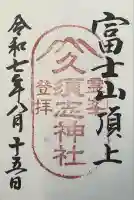 富士山頂上
霊峯
久須志神社
登拝
令和七年八月十五日